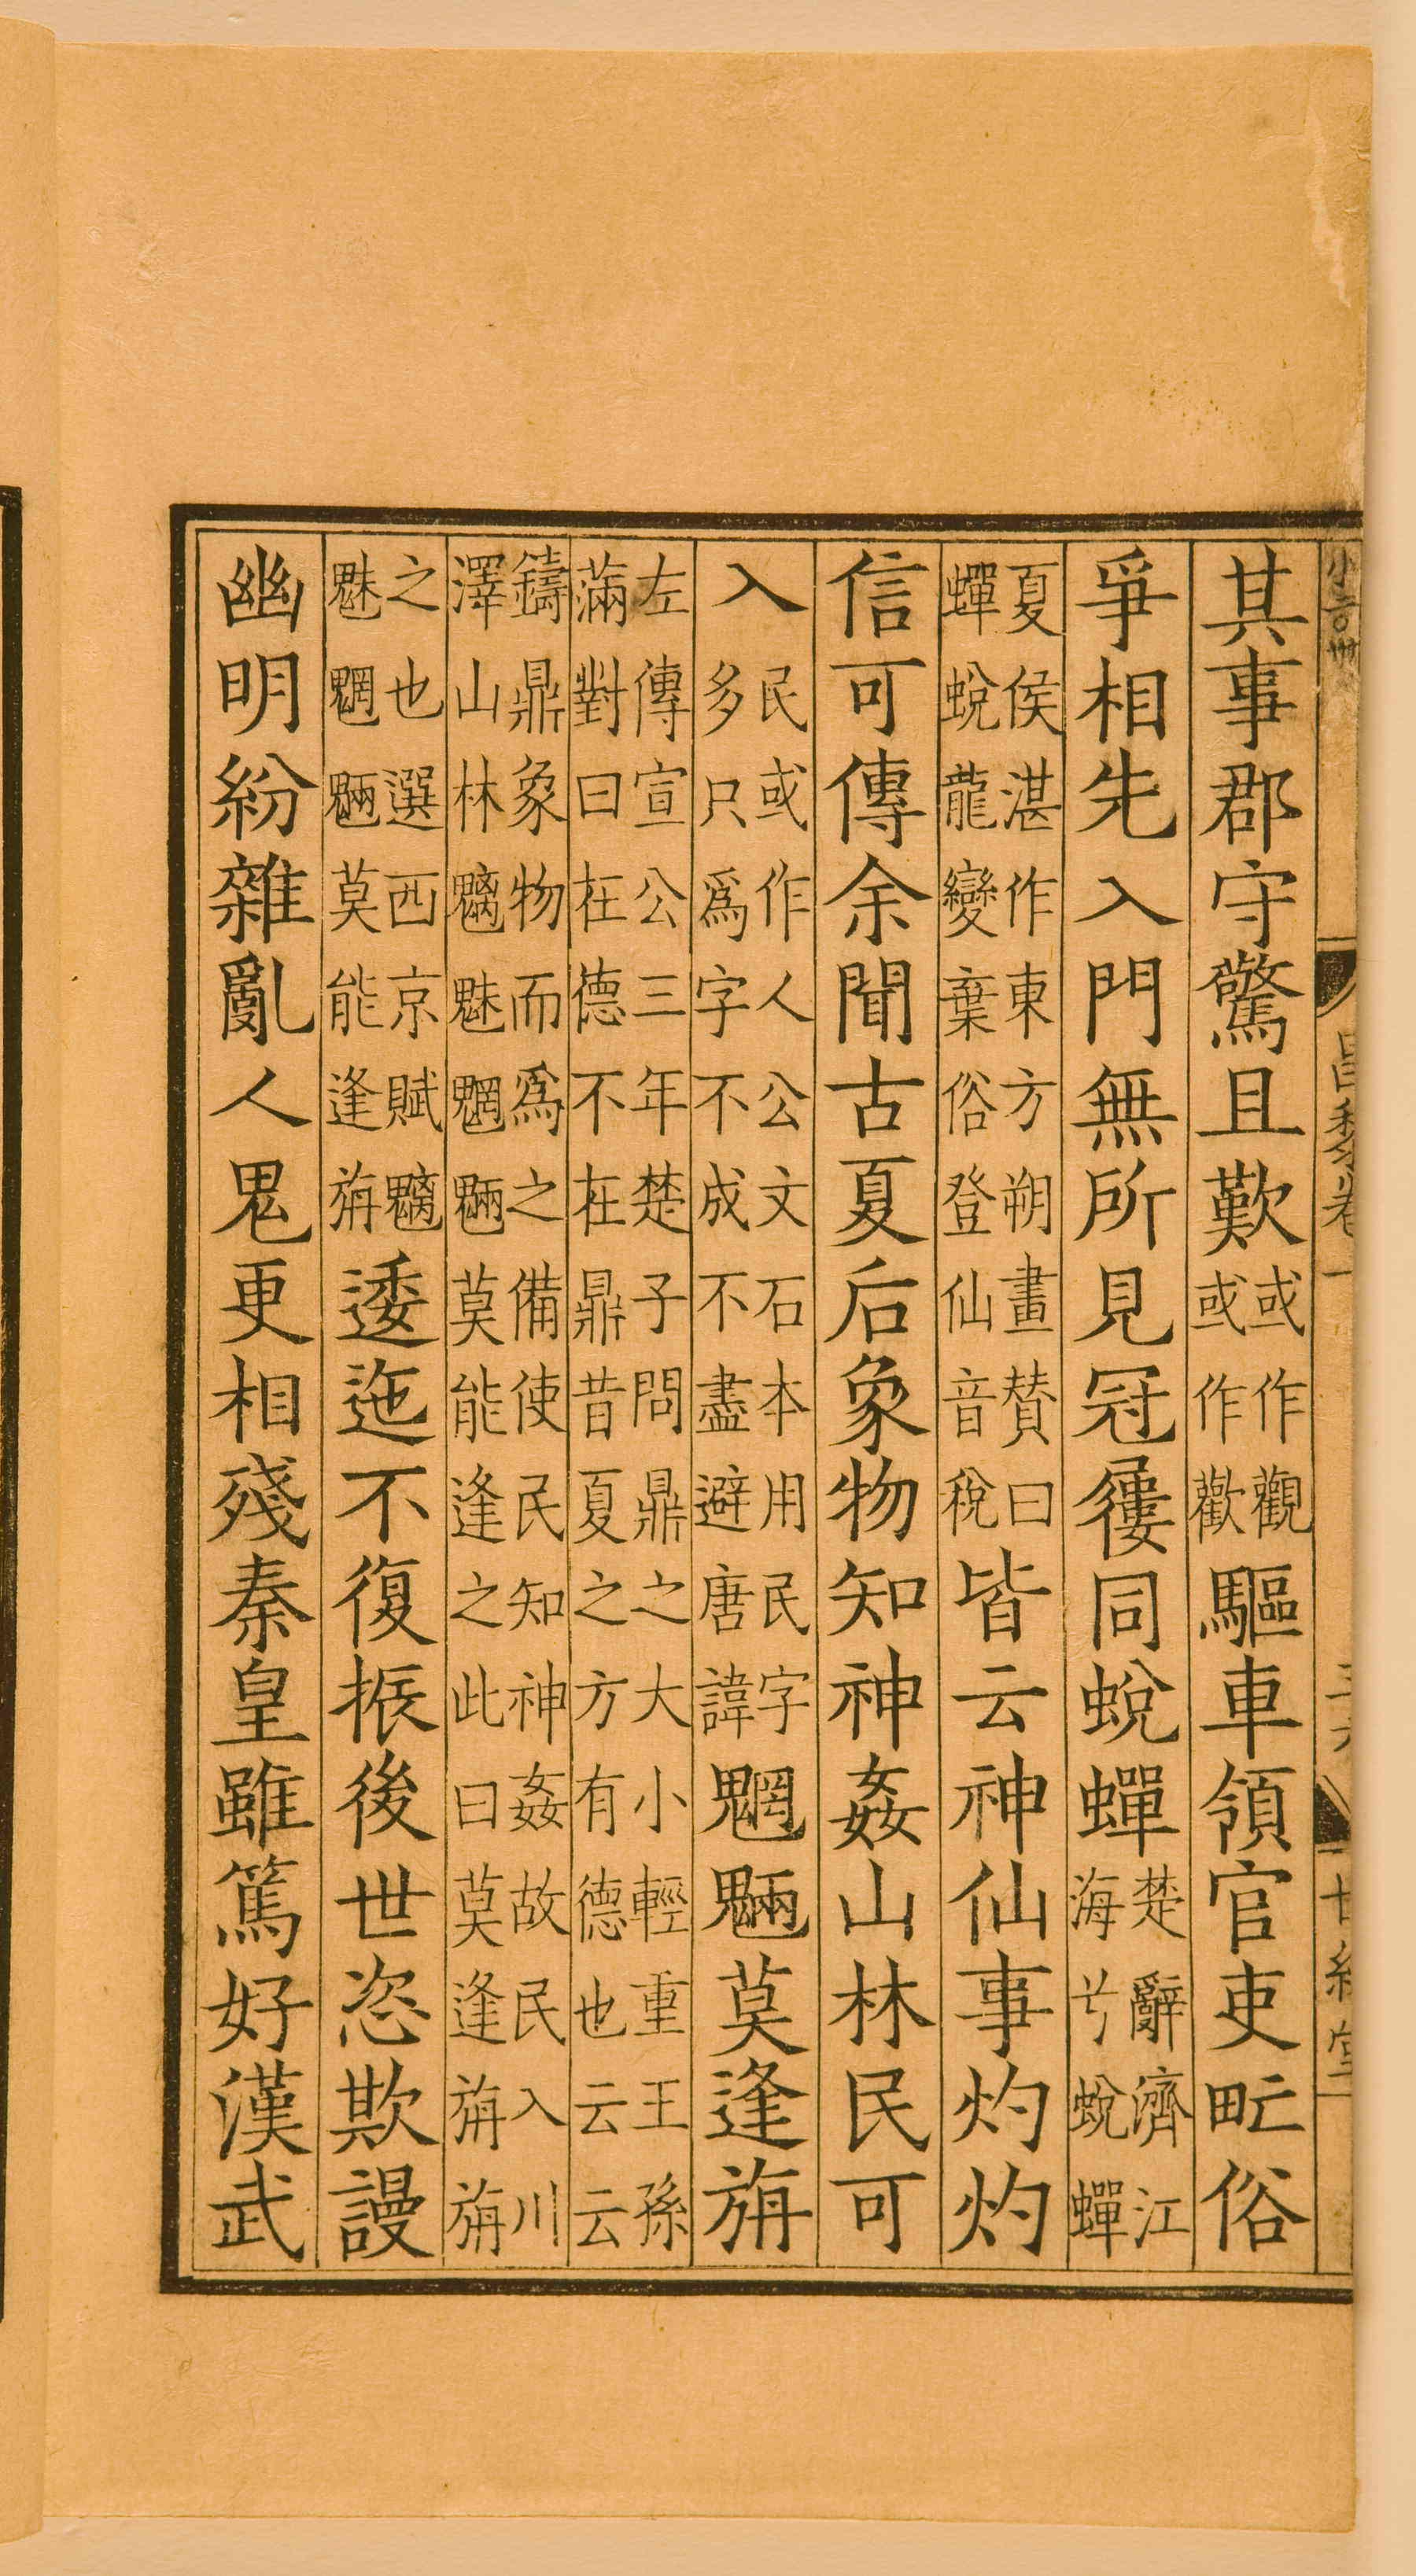 其事郡守驚且歎或作觀或作歡驅車領官吏甿俗
爭相先入門無所見冠屨同蛻蟬楚辭濟江海兮蛻蟬
夏侯湛作東方朔畫贊曰蟬蛻龍變棄俗登仙音稅皆云神仙事灼灼
信可傳余聞古夏后象物知神姦山林民可
入民或作人公文石本用民字多只爲字不成不盡避唐諱魍魎莫逢旃
左傳宣公三年楚子問鼎之大小輕重王孫滿對曰在德不在鼎昔夏之方有德也云云
鑄鼎象物而爲之備使民知神姦故民入川澤山林魑魅魍魎莫能逢之此曰莫逢旃旃
之也選西京賦魑魅魍魎莫能逢旃逶迤不復振後世恣欺謾
幽明紛雜亂人鬼更相殘秦皇雖篤好漢武